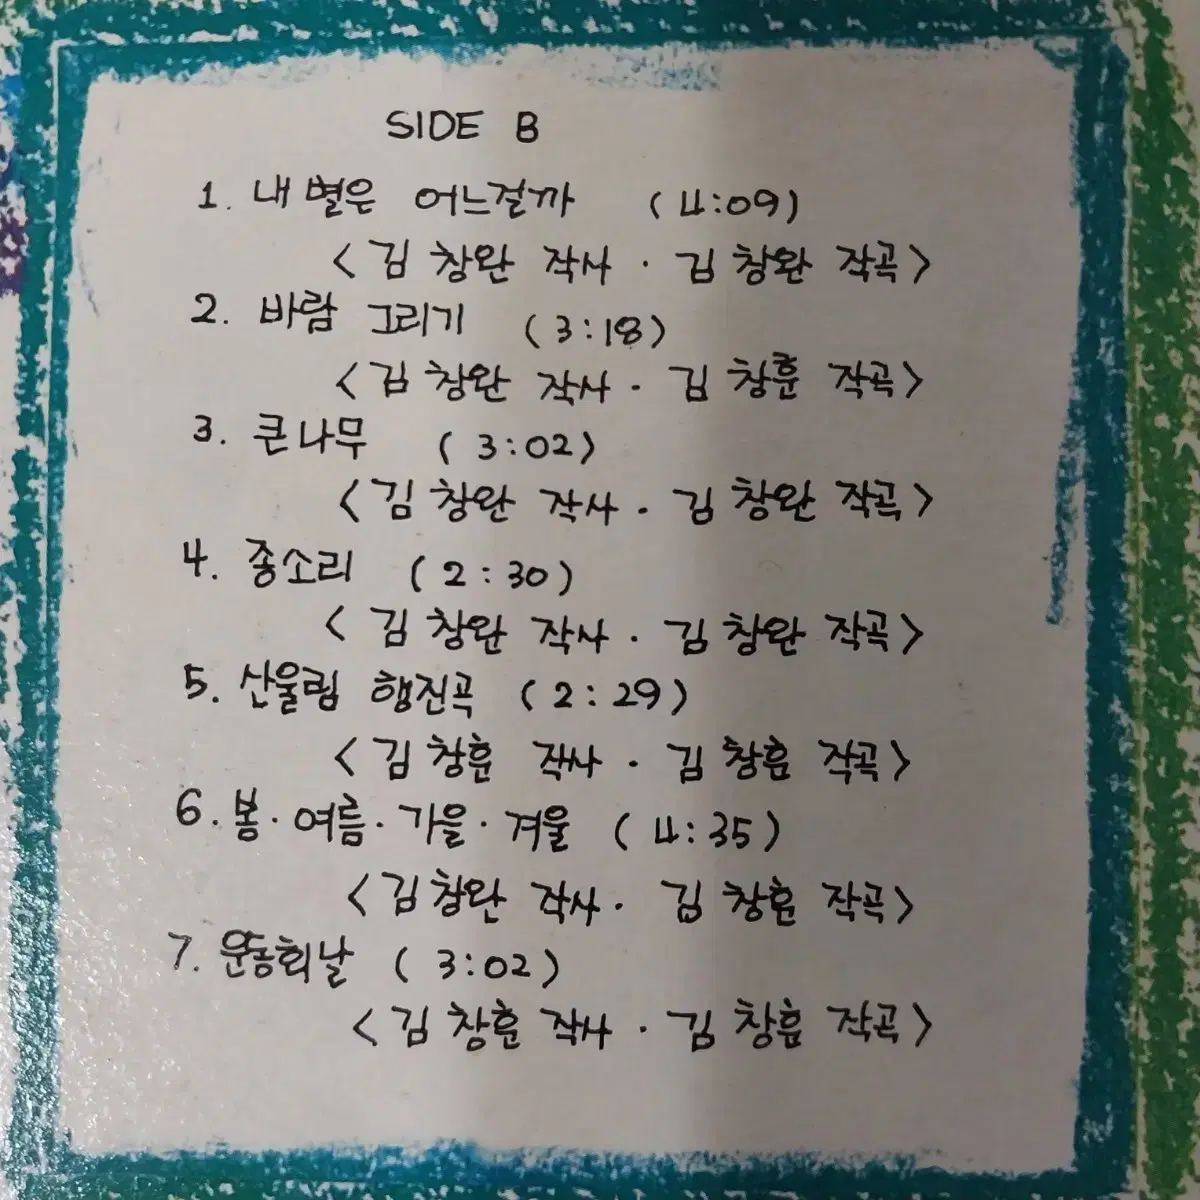 SIDE B
1. 내 별은 어느걸까 (4:09)
<김 창완 작사 · 김 창완 작곡>
2. 바람 그리기 (3:18)
<김 창완 작사 · 김 창훈 작곡>
3. 큰나무 (3:02)
<김 창완 작사 · 김 창완 작곡>
4. 종소리 (2:30)
<김 창완 작사 · 김 창완 작곡>
5. 산울림 행진곡 (2:29)
<김 창훈 작사 · 김 창훈 작곡>
6. 봄·여름·가을·겨울 (4:35)
<김 창완 작사 · 김 창훈 작곡>
7. 운동회날 (3:02)
<김 창훈 작사 · 김 창훈 작곡>